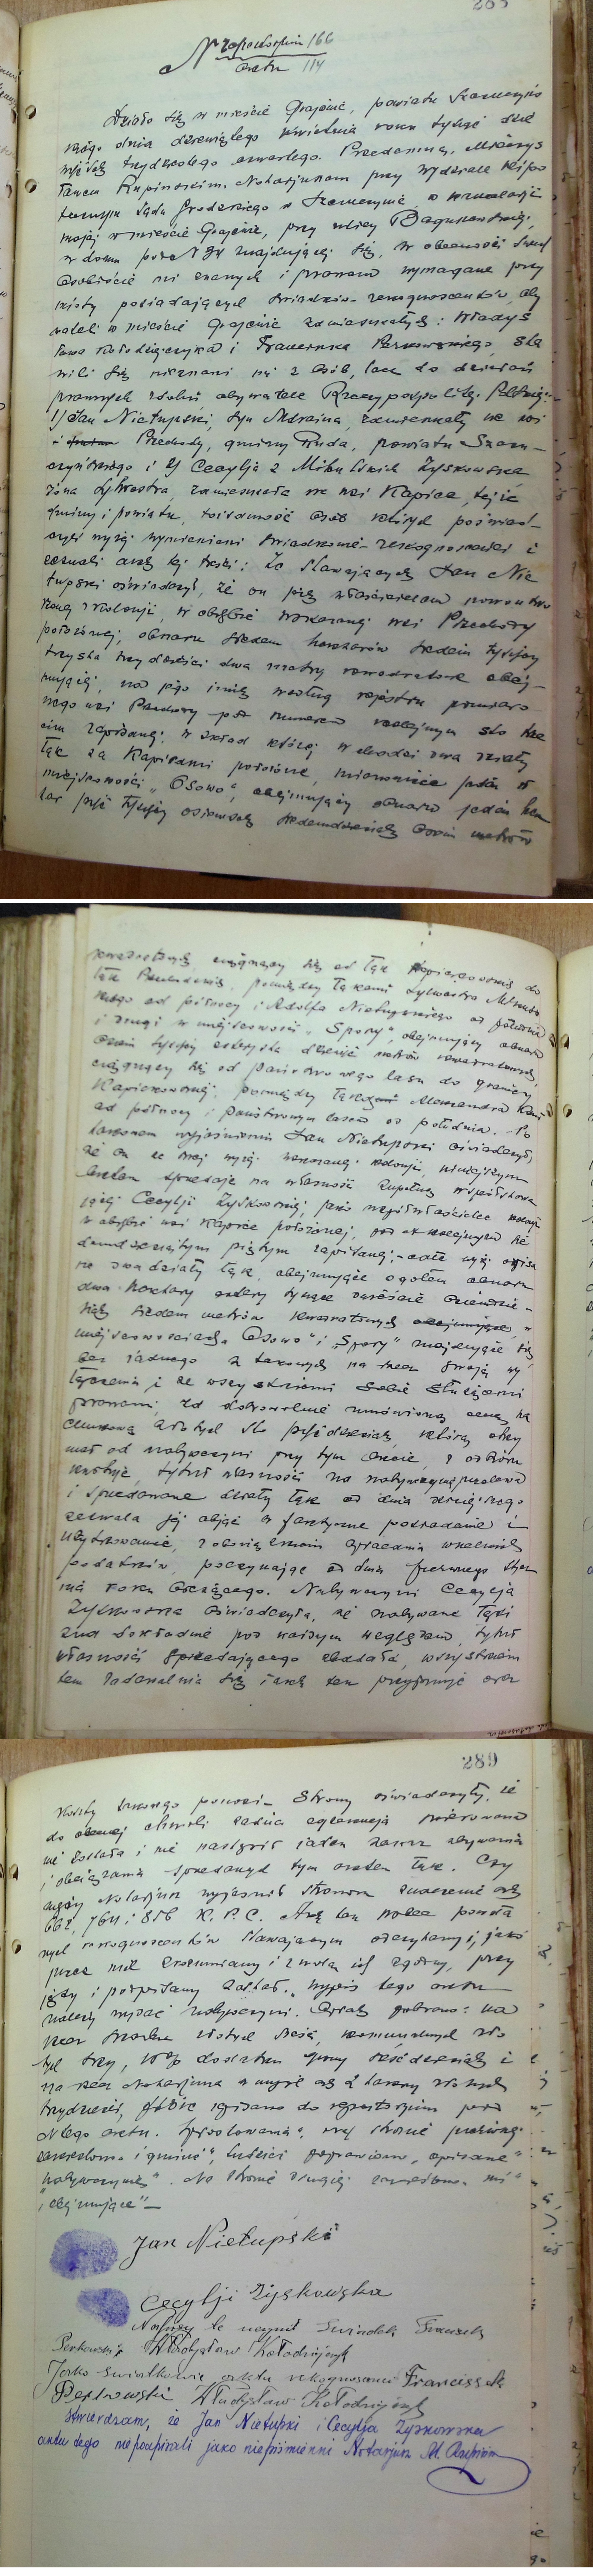 265
N repertorjum 166
aktu 114
Działo się w mieście Grajewie, powiatu Szczuczyńs
kiego dnia dziewiątego kwietnia roku tysiąc dzie
więćset trzydziestego czwartego. Przedemną, Mieczys
ławem Rupińskim, Notarjuszem przy Wydziale Hipo
tecznym Sądu Grodzkiego w Szczuczynie, w kancelarji
mojej w mieście Grajewie, przy ulicy Boguszewskiej,
w domu pod N znajdującej się, w obecności
osobiście mi znanych i prawem wymagane przy
mioty posiadających świadków-rekognoscentów, oby
wateli w mieście Grajewie zamieszkałych: Władys
ława Kołodziejczyka i Franciszka Perkowskiego, sta
wili się nieznani mi z osób, lecz do działań
prawnych zdolni obywatele Rzeczypospolitej Polskiej:
1/ Jan Nietupski, syn Marcina, zamieszkały we wsi
Przechody, gminy Ruda, powiatu Szczu-
czyńskiego i 2/ Cecylja z Mikuckich Zyskowska
żona Sylwestra, zamieszkała we wsi Kapice, tejże
gminy i powiatu, tożsamość osób których poświad-
czyli wyżej wymienieni świadkowie-rekognoscenci i
zeznali akt tej treści: Że stawających Jan Nie
tupski oświadczył, że on jest właścicielem
kolonji, w obrębie wskazanej wsi Przechody
położonej, obszaru siedem hektarów siedem tysięcy
trzysta trzydzieści dwa metry kwadratowe obej-
mującej, na jego imię według rejestru pomiaro
wego wsi Przechody pod numerem kolejnym sto
zapisanej; w skład której wchodzi dwa działy
łąk za Kapicami położone, mianowicie jeden w
miejscowości „Osowo”, obejmujący obszaru jeden hek
tar pięć tysięcy osiemset siedemdziesiąt osiem metrów
kwadratowych, ciągnący się od łąk Kapicowskich do
łąk pomiędzy łąkami Sylwestra
od północy i Adolfa Nietupskiego od południa
i drugi w miejscowości „Spory”, obejmujący obszaru
osiem tysięcy czterysta dziewięć metrów kwadratowych,
ciągnący się od państwowego lasu do granicy
Kapickowskiej, pomiędzy łąkami Aleksandra
od północy i państwowym lasem od południa. Po
takowem wyjaśnieniu Jan Nietupski oświadczył,
że on ze swej wyżej wskazanej kolonji, niniejszym
aktem sprzedaje na własność zupełną współstawa
jącej Cecylji Zyskowskiej, jako współwłaścicielce kolonji
w obrębie wsi Kapice położonej, pod N kolejnym sie
demdziesiątym piątym zapisanej, - całe wyżej opisa
ne dwa działy łąk, obejmujące ogółem obszaru
dwa hektary cztery tysiące dwieście osiemdzie-
siąt siedem metrów kwadratowych obejmujące, w
miejscowościach „Osowo” i „Spory” znajdujące się
bez żadnego z takowych na rzecz swoją wy
łączenia i ze wszystkiemi sobie służącemi
prawami, za dobrowolnie umówioną cenę sza
cunkową złotych sto pięćdziesiąt, którą otrzy
mał od nabywczyni przy tym akcie, z odbioru
kwituje, tytuł własności na nabywczynię przelewa
i sprzedane działy łąk od dnia dzisiejszego
zezwala jej objąć w faktyczne posiadanie i
użytkowanie, z obowiązkiem opłacania wszelkich
podatków, poczynając od dnia pierwszego stycz
nia roku bieżącego. Nabywczyni Cecylja
Zyskowska oświadczyła, że nabywane łąki
zna dokładnie pod każdym względem, tytuł
własności sprzedającego zbadała, wszystkiem
tem zadawalnia się i akt ten przyjmuje oraz
289
koszty takowego ponosi. Strony oświadczyły, że
do obecnej chwili żadna egzekucja skierowana
nie została i nie nastąpił żaden zakaz zbywania
i obciążania sprzedanych tym aktem łąk. Czy
niący Notarjusz wyjaśnił stronom znaczenie art
662, 764 i 856 K.P.C. Akt ten wobec powoła
nych rekognoscentów stawającym odczytany i, jako
przez nich zrozumiany i z wolą ich zgodny, przy
jęty i podpisany został. Wypis tego aktu
należy wydać nabywczyni. Opłaty pobrano: na
rzecz Skarbu złotych sześć, komunalnych zło
tych trzy, 10% dodatku groszy sześćdziesiąt i
na rzecz Notarjusza w myśl § 2 taksy złotych
trzydzieści, które wpisano do repertorjum pod
N tego aktu. na stronie pierwszej
zakreślono „i gminie”, poprawiono „opisane”
„nabywczynię”. Na stronie drugiej zakreślono „mi”
„i obejmujące” -
Jan Nietupski
Cecylji Zyskowska
Napisy te uczynił świadek Francisek
Perkowski Władysław Kołodziejczyk
Jako świadkowie aktu rekognosanci Francissek
Perkowski Władysław Kołodziejczyk
Stwierdzam, że Jan Nietupski i Cecylja Zyskowska
aktu tego niepodpisali jako niepiśmienni Notarjusz M. Rupiński